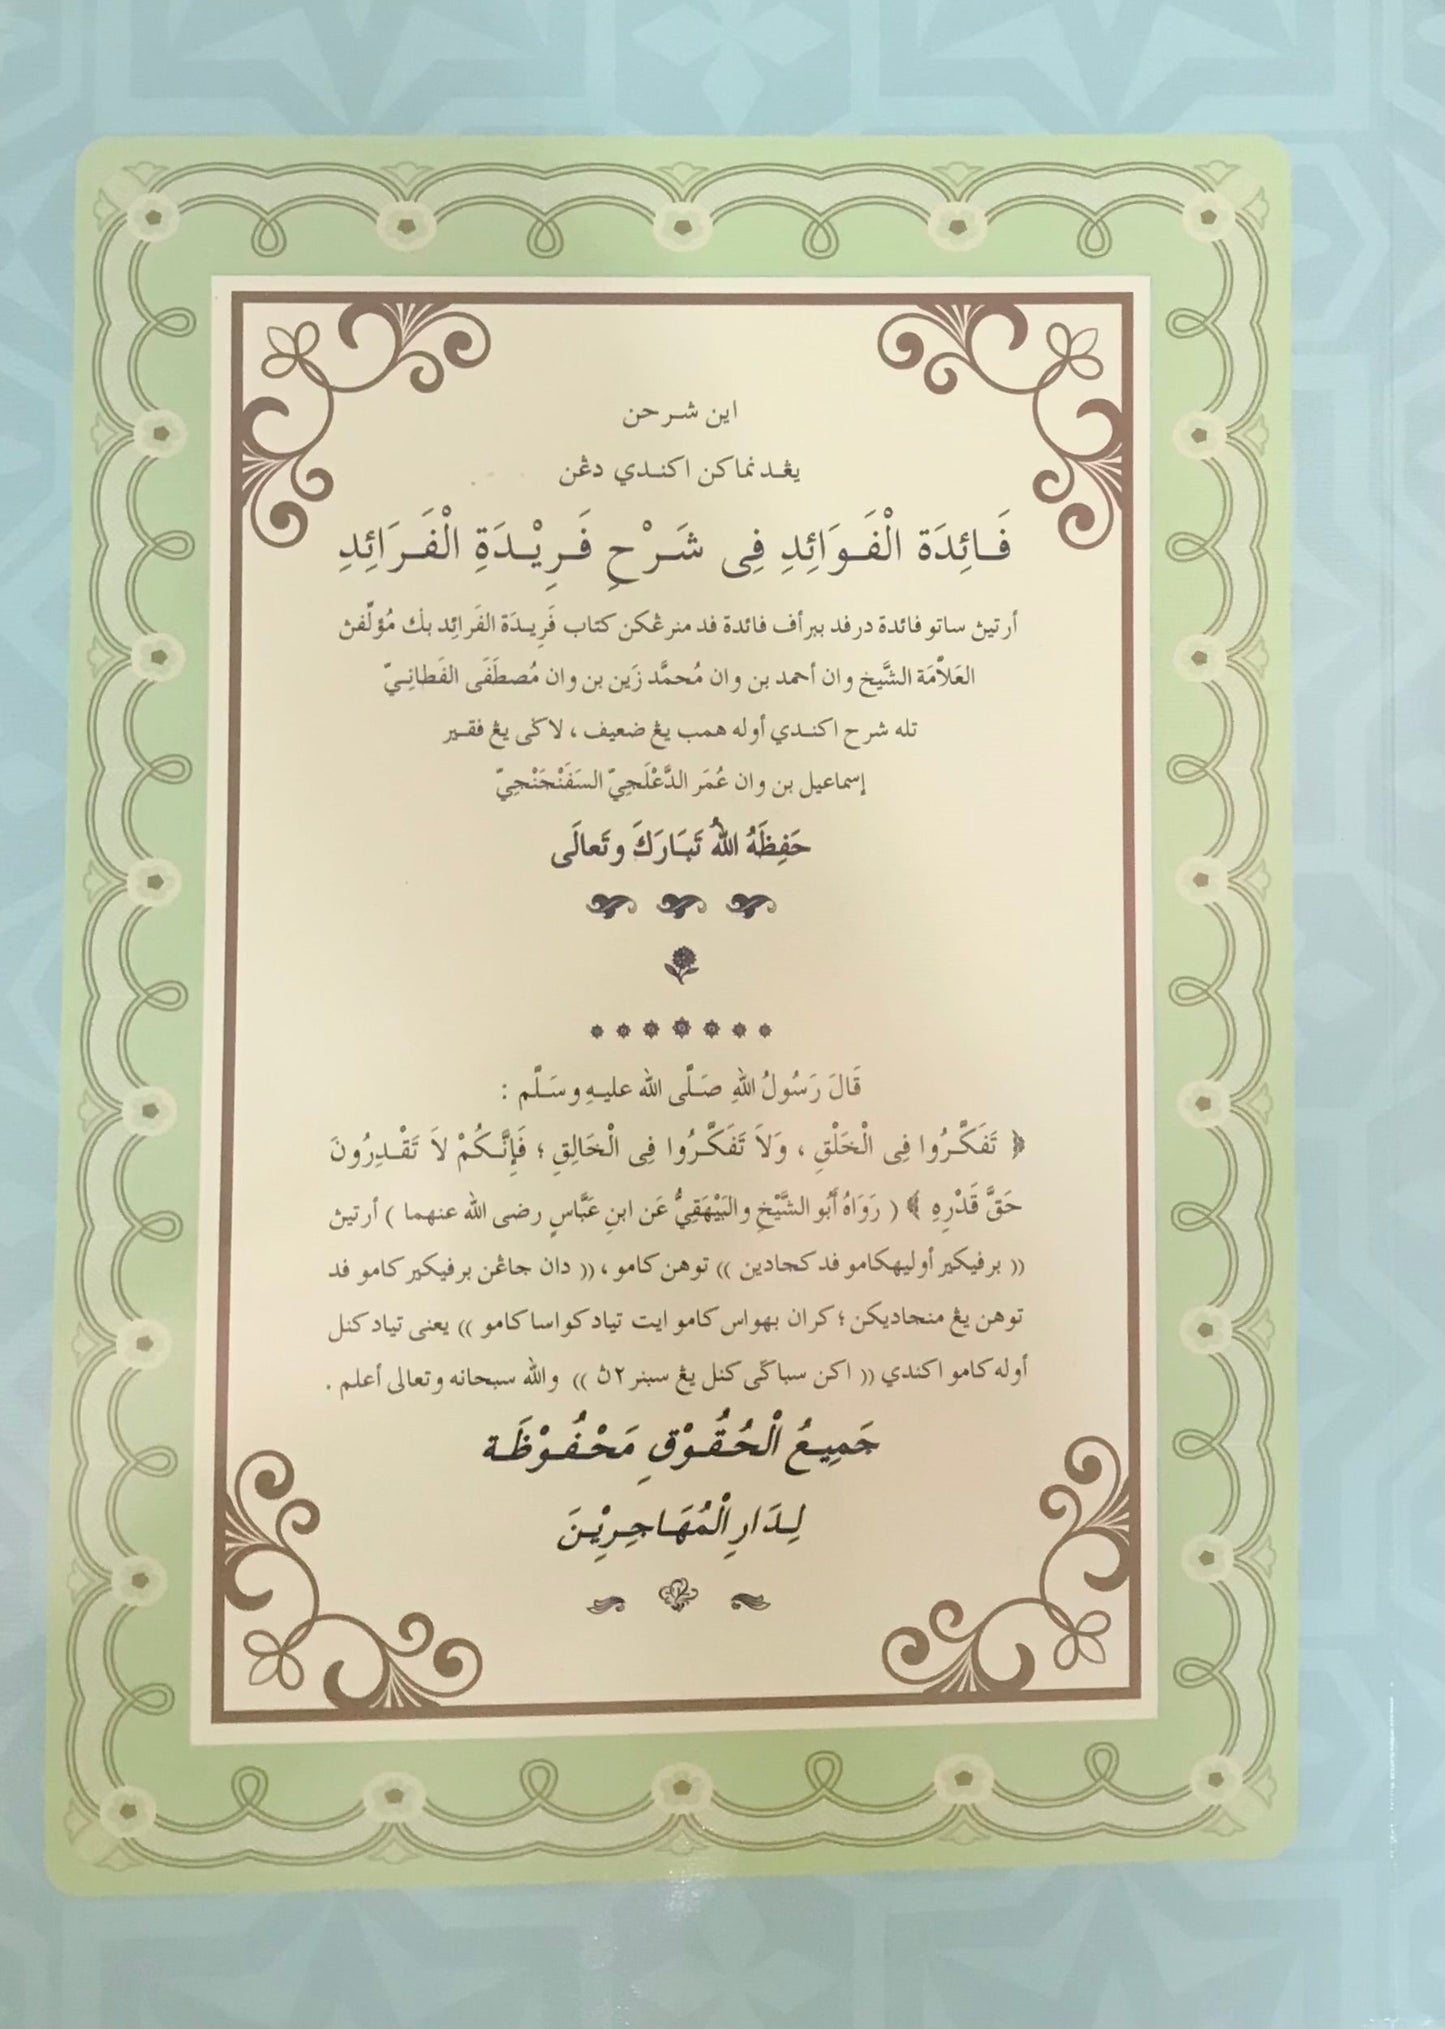 اين شرحن
يڠد نماكن اكندي دڠن
فَائِدَة الْفَوَائِدِ فِى شَرْحِ فَرِيْدَةِ الْفَرَائِدِ
أرتيڽ ساتو فائدة درفد ببرأف فائدة فد منرڠكن كتاب فَرِيدَة الفَرائِد بݢ مُؤلّفڽ
العَلاَّمَة الشَّيخ وان أحمد بن وان مُحمَّد زَين بن وان مُصطَفَى الفَطانِـيّ
تله شرح اكندي أوله همب يڠ ضعيف ، لاݢى يڠ فقير
إسماعيل بن وان عُمَر الدَّعْلَجِيّ السَفَنْجَنْجِيّ
حَفِظَهُ اللهُ تَبَارَكَ وتَعالَى
قَالَ رَسُولُ اللهِ صَلَّى الله عليهِ وسَلَّم :
﴿ تَفَكَّرُوا فِى الْخَلْقِ ، وَلاَ تَفَكَّرُوا فِى الْخَالِقِ ؛ فَإِنَّكُمْ لاَ تَقْدِرُونَ
حَقَّ قَدْرِهِ ﴾ ( رَوَاهُ أَبُو الشَّيْخِ والبَيْهَقِيُّ عَن ابنِ عَبَّاسٍ رضى الله عنهما ) أرتيڽ
(( برفيكير أوليهكامو فد كجادين )) توهن كامو ، (( دان جاڠن برفيكير كامو فد
توهن يڠ منجاديكن ؛ كران بهواس كامو ايت تياد كواسا كامو )) يعنى تياد كنل
أوله كامو اكندي (( اكن سباݢى كنل يڠ سبنر٢ڽ )) والله سبحانه وتعالى أعلم .
جَمِيعُ الْحُقُوْقِ مَحْفُوْظَة
لِدَارِ الْمُهَاجِرِيْنَ